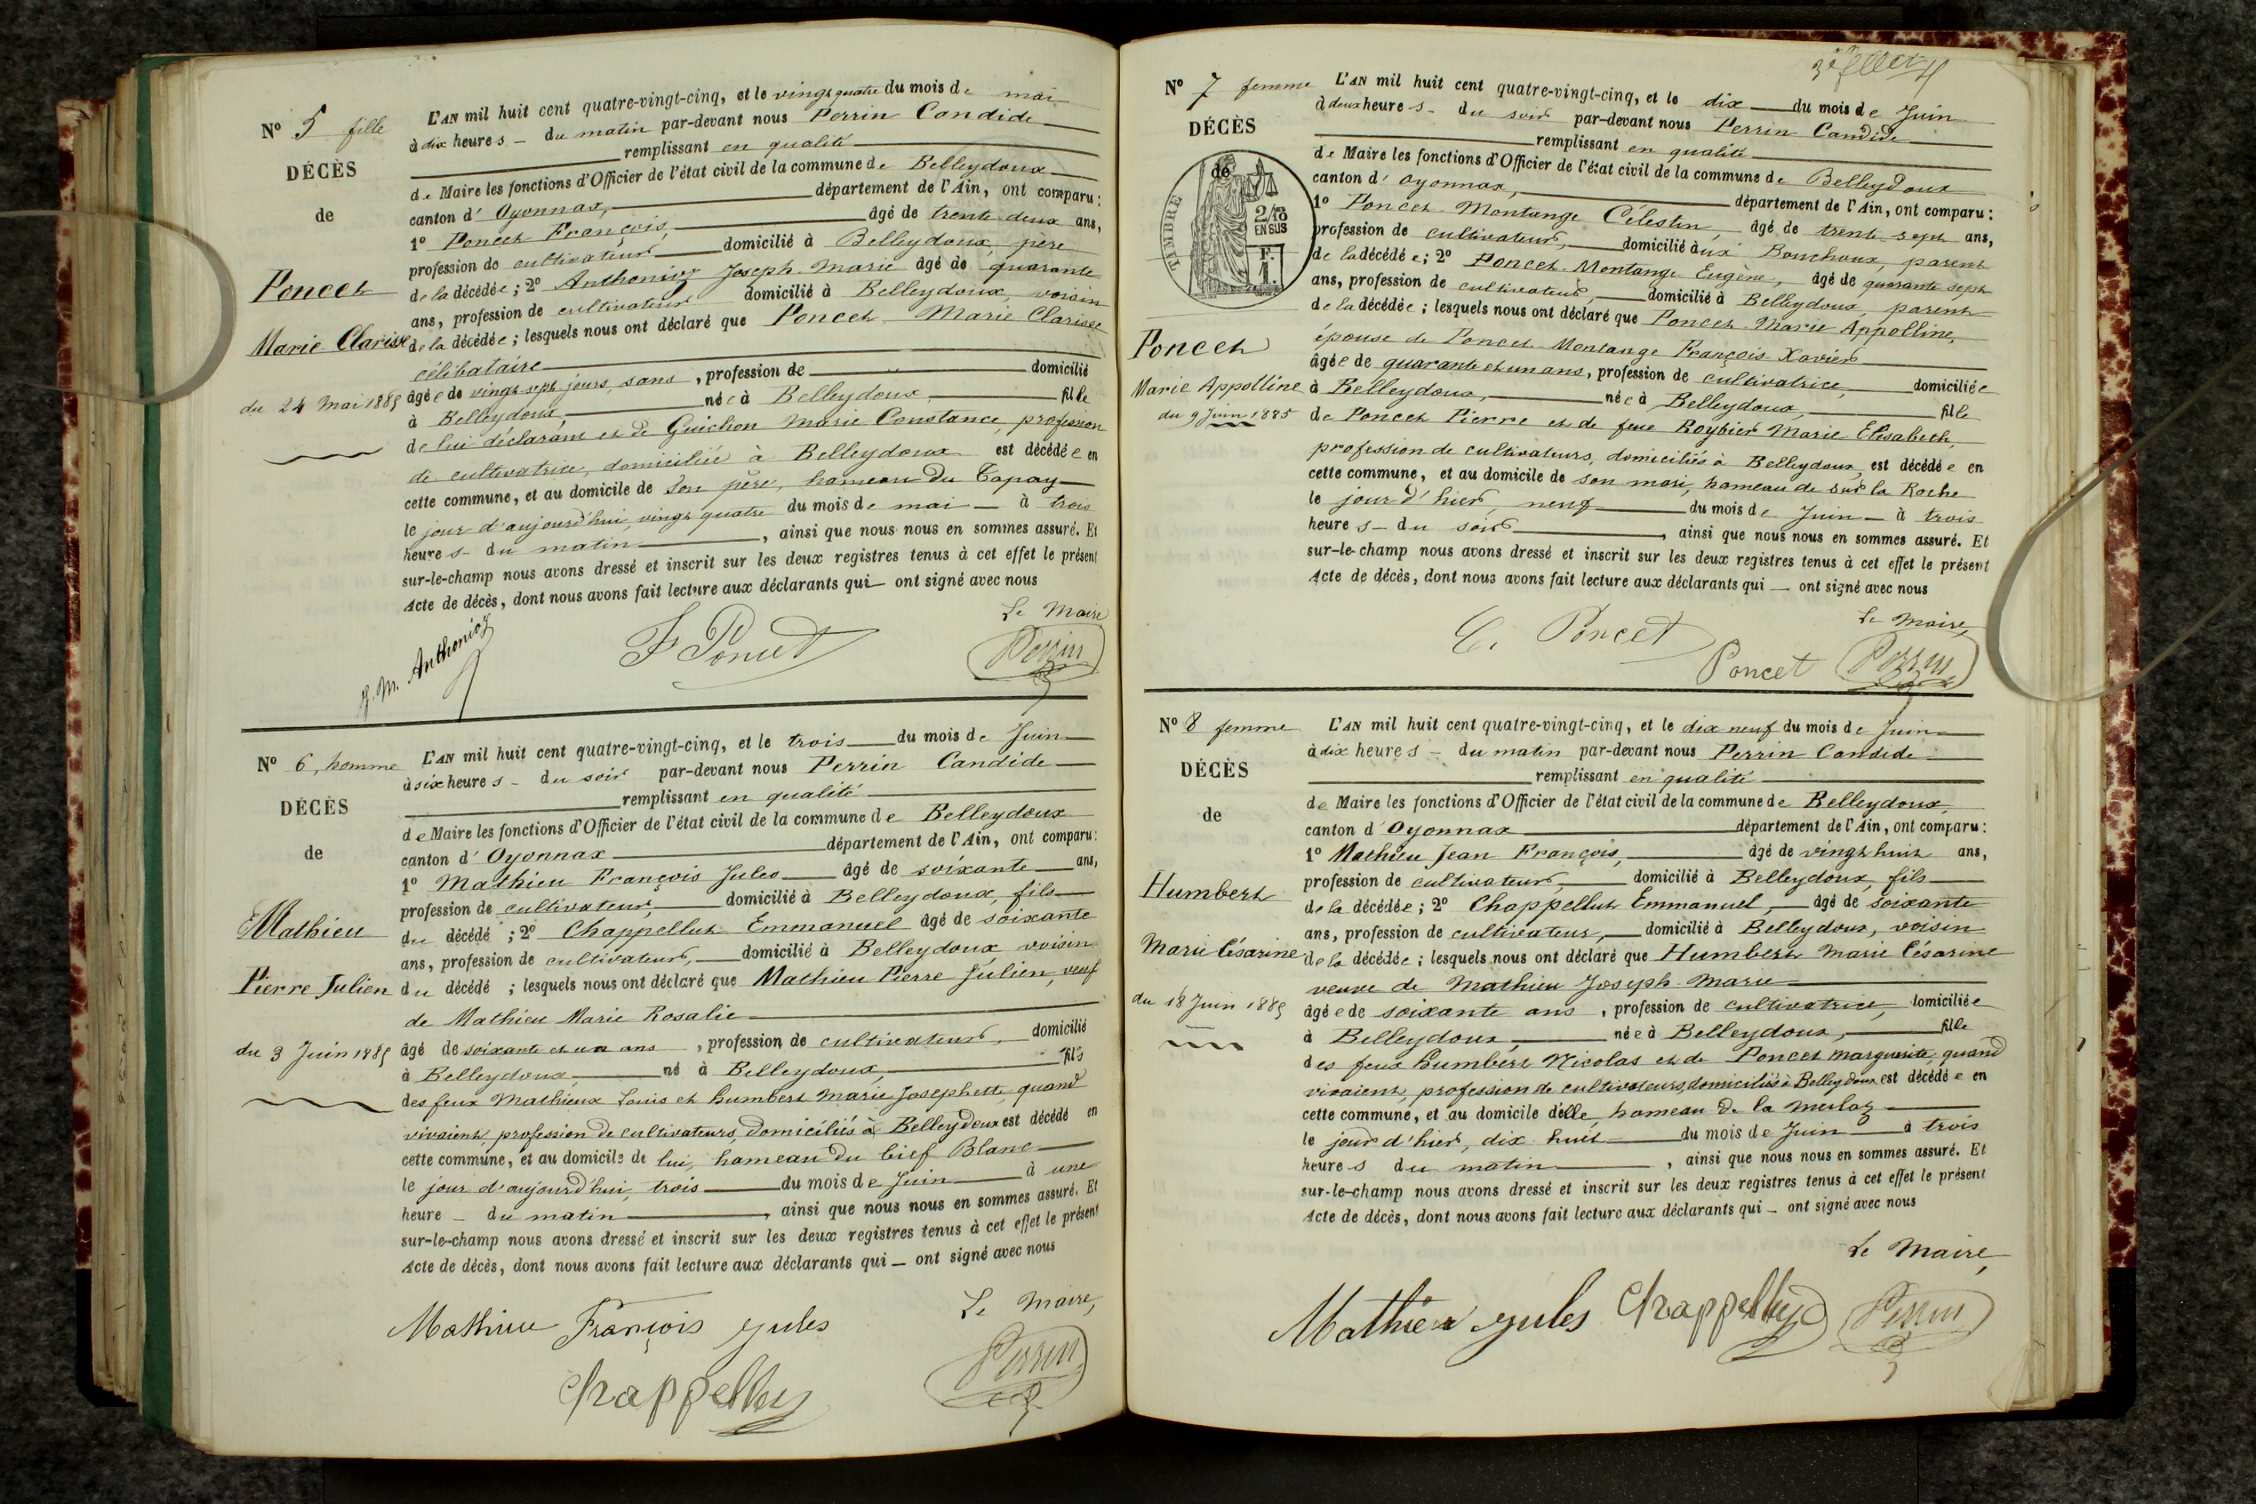 N° 5 fille
DÉCÈS
de
Poncet
Marie Clarisse
du 24 Mai 1885
L'AN mil huit cent quatre-vingt-cinq, et le vingt quatre du mois de mai
à dix heures - du matin par-devant nous Perrin Candide
remplissant en qualité
de Maire les fonctions d'Officier de l'état civil de la commune de Belleydoux
canton d' Oyonnax, département de l'Ain, ont comparu:
1° Poncet François, âgé de trente deux ans,
profession de cultivateur domicilié à Belleydoux, père
de la décédée; 2° Anthonioz Joseph Marie âgé de quarante
ans, profession de cultivateur domicilié à Belleydoux, voisin
de la décédée; lesquels nous ont déclaré que Poncet Marie Clarisse
célibataire
âgée de vingt sept jours, sans, profession de domicilié
à Belleydoux, née à Belleydoux, fille
de lui déclarant et de Guichon Marie Constance, profession
de cultivatrice, domiciliée à Belleydoux est décédée en
cette commune, et au domicile de son père, hameau du Tapay
le jour d'aujourd'hui, vingt quatre du mois de mai à trois
heures du matin, ainsi que nous nous en sommes assuré. Et
sur-le-champ nous avons dressé et inscrit sur les deux registres tenus à cet effet le présent
Acte de décès, dont nous avons fait lecture aux déclarants qui ont signé avec nous
Le Maire
J. M. Anthonioz
F Poncet
Perrin
N° 6, homme
DÉCÈS
de
Mathieu
Pierre Julien
du 3 Juin 1885
L'AN mil huit cent quatre-vingt-cinq, et le trois du mois de Juin
à six heures - du soir par-devant nous Perrin Candide
remplissant en qualité
de Maire les fonctions d'Officier de l'état civil de la commune de Belleydoux
canton d' Oyonnax département de l'Ain, ont comparu:
1° Mathieu François Jules âgé de soixante ans,
profession de cultivateur, domicilié à Belleydoux, fils
du décédé; 2° Chappellut Emmanuel âgé de soixante
ans, profession de cultivateur, domicilié à Belleydoux, voisin
du décédé; lesquels nous ont déclaré que Mathieu Pierre Julien, veuf
de Mathieu Marie Rosalie
âgé de soixante et un ans, profession de cultivateur, domicilié
à Belleydoux, né à Belleydoux, fils
des feux Mathieux Louis et humbert Marie Josephette, quand
vivaient, profession de cultivateurs, domiciliés à Belleydoux est décédé en
cette commune, et au domicile de lui, hameau du bief Blanc
le jour d'aujourd'hui, trois du mois de Juin à une
heure - du matin, ainsi que nous nous en sommes assuré. Et
sur-le-champ nous avons dressé et inscrit sur les deux registres tenus à cet effet le présent
Acte de décès, dont nous avons fait lecture aux déclarants qui ont signé avec nous
Le Maire,
Mathieu François jules
Chappellut
Perrin
N° 7 femme
DÉCÈS
de
TIMBRE
2/10
EN SUS
Poncet
Marie Appolline
du 9 Juin 1885
L'AN mil huit cent quatre-vingt-cinq, et le dix du mois de Juin
à deux heures - du soir par-devant nous Perrin Candide
remplissant en qualité
de Maire les fonctions d'Officier de l'état civil de la commune de Belleydoux
canton d' Oyonnax, département de l'Ain, ont comparu:
1° Poncet Montange Célestin, âgé de trente sept ans,
profession de cultivateur, domicilié aux Bouchoux, parent
de la décédée; 2° Poncet Montange Eugène, âgé de quarante sept
ans, profession de cultivateur, domicilié à Belleydoux, parent
de la décédée; lesquels nous ont déclaré que Poncet Marie Appolline,
épouse de Poncet Montange François Xavier
âgée de quarante et un ans, profession de cultivatrice, domiciliée
à Belleydoux, née à Belleydoux, fille
de Poncet Pierre et de feue Roybier Marie Elisabeth,
profession de cultivateurs, domiciliés à Belleydoux, est décédée en
cette commune, et au domicile de son mari, hameau de sur la Roche
le jour d'hier, neuf du mois de Juin à trois
heures - du soir, ainsi que nous nous en sommes assuré. Et
sur-le-champ nous avons dressé et inscrit sur les deux registres tenus à cet effet le présent
Acte de décès, dont nous avons fait lecture aux déclarants qui ont signé avec nous
Le Maire,
C. Poncet
Poncet
Perrin
N° 8 femme
DÉCÈS
de
Humbert
Marie Césarine
du 18 Juin 1885
L'AN mil huit cent quatre-vingt-cinq, et le dix neuf du mois de Juin
à dix heures - du matin par-devant nous Perrin Candide
remplissant en qualité
de Maire les fonctions d'Officier de l'état civil de la commune de Belleydoux,
canton d' Oyonnax département de l'Ain, ont comparu:
1° Mathieu Jean François, âgé de vingt huit ans,
profession de cultivateur, domicilié à Belleydoux, fils
de la décédée; 2° Chappellut Emmanuel, âgé de soixante
ans, profession de cultivateur, domicilié à Belleydoux, voisin
de la décédée; lesquels nous ont déclaré que Humbert Marie Césarine
veuve de Mathieu Joseph Marie
âgée de soixante ans, profession de cultivatrice, domiciliée
à Belleydoux, née à Belleydoux, fille
des feux humbert Nicolas et de Poncet marguerite, quand
vivaient, profession de cultivateurs, domiciliés à Belleydoux est décédée en
cette commune, et au domicile d'elle, hameau de la Merlaz
le jour d'hier, dix huit du mois de Juin à trois
heures du matin, ainsi que nous nous en sommes assuré. Et
sur-le-champ nous avons dressé et inscrit sur les deux registres tenus à cet effet le présent
Acte de décès, dont nous avons fait lecture aux déclarants qui ont signé avec nous
Le Maire,
Mathieu jules
Chappellut
Perrin